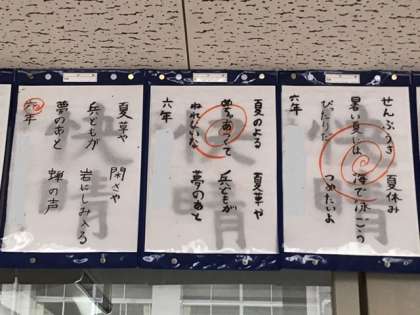 せんぷうき　夏休み
暑い夏には　海で泳ごう
ぴったりだ　つめたいよ
六年
快晴
夏のよる　夏草や
あつくて　兵どもが
ねれないな　夢のあと
六年
快晴
夏草や　閑さや
兵どもが　岩にしみ入る
夢のあと　蝉の声
六年
快晴